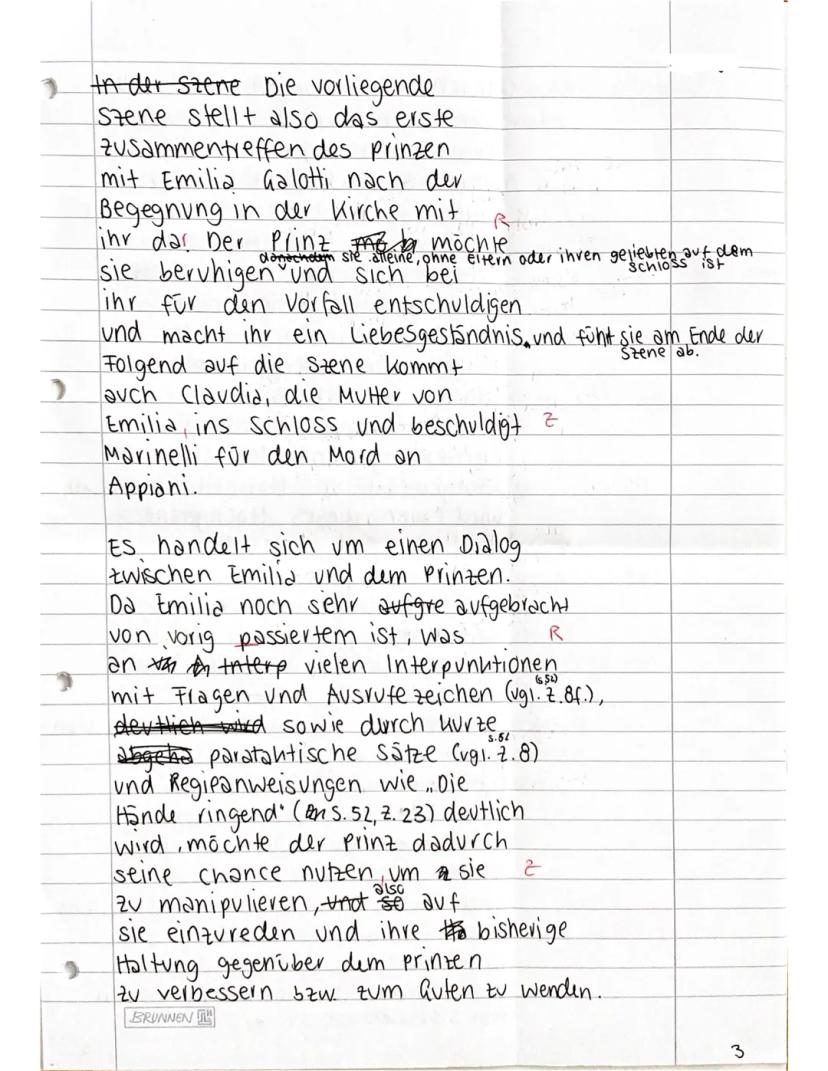 In der Szene Die vorliegende
Szene stellt also das erste
Zusammentreffen des Prinzen
mit Emilia Galotti nach der
Begegnung in der Kirche mit
R
ihr dar. Der Prinz möchte
danachdem sie alleine, ohne Eltern oder ihren geliebten auf dem
schloss ist
sie beruhigen und sich bei
ihr für den Vorfall entschuldigen
und macht ihr ein Liebesgeständnis. und führt sie am Ende der
Szene ab.
Folgend auf die Szene kommt
auch Claudia, die Mutter von
Emilia, ins Schloss und beschuldigt Z
Marinelli für den Mord an
Appiani.
Es handelt sich um einen Dialog
zwischen Emilia und dem Prinzen.
Da Emilia noch sehr aufgre aufgebracht
von vorig passiertem ist, was R
an Interp vielen Interpunktionen
(S.52)
mit Fragen und Ausrufezeichen (vgl. Z. 8f.),
deutlich wird sowie durch kurze
S.52
abgeha parataktische Sätze (vgl. Z. 8)
und Regieanweisungen wie „Die
Hände ringend" (S. 52, Z. 23) deutlich
wird, möchte der Prinz dadurch
seine Chance nutzen, um sie Z
also
zu manipulieren, und so auf
sie einzureden und ihre bisherige
Haltung gegenüber dem Prinzen
zu verbessern bzw. zum Guten zu wenden.
BRUNNEN
3